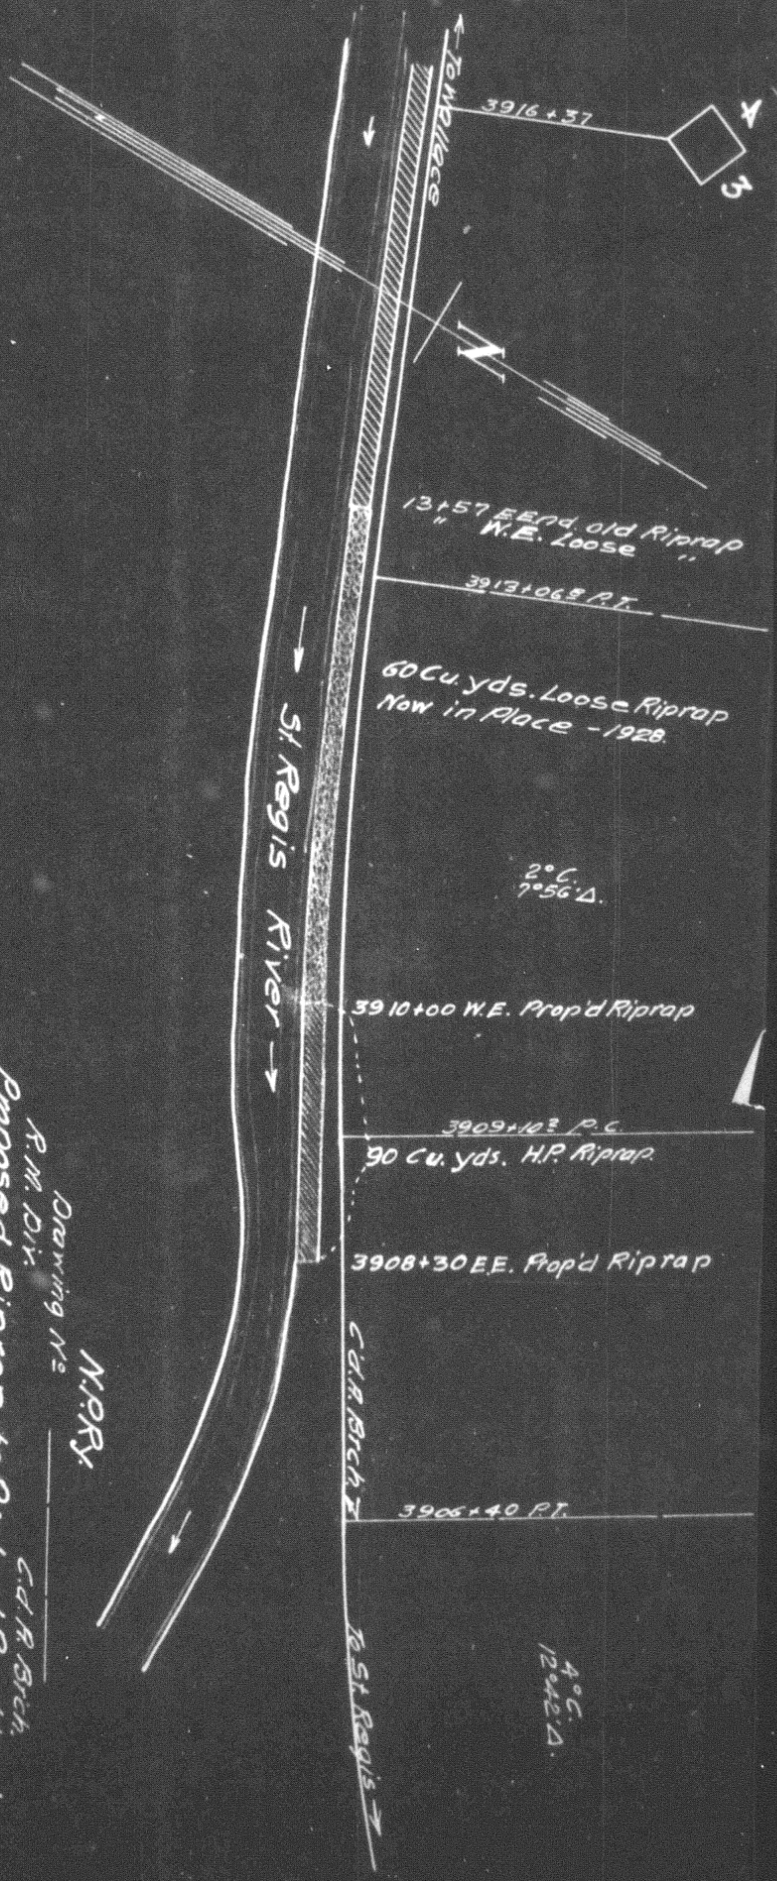 ← To Wallace
3916+37
4
3
N
13+57 E.End. old Riprap
" W.E. Loose "
3913+06⁸ P.T.
60 Cu. yds. Loose Riprap
Now in Place - 1928.
→ St. Regis River →
2° C.
7°56' Δ.
3910+00 W.E. Prop'd Riprap
3909+10² P.C.
90 Cu. yds. H.P. Riprap.
3908+30 E.E. Prop'd Riprap
C.d'A. Brch.
3906+40 P.T.
To St Regis →
4° C.
12°42' Δ.
N.P.Ry.
Drawing Nº
R.M. Div. C.d'A. Brch.
Proposed Riprap